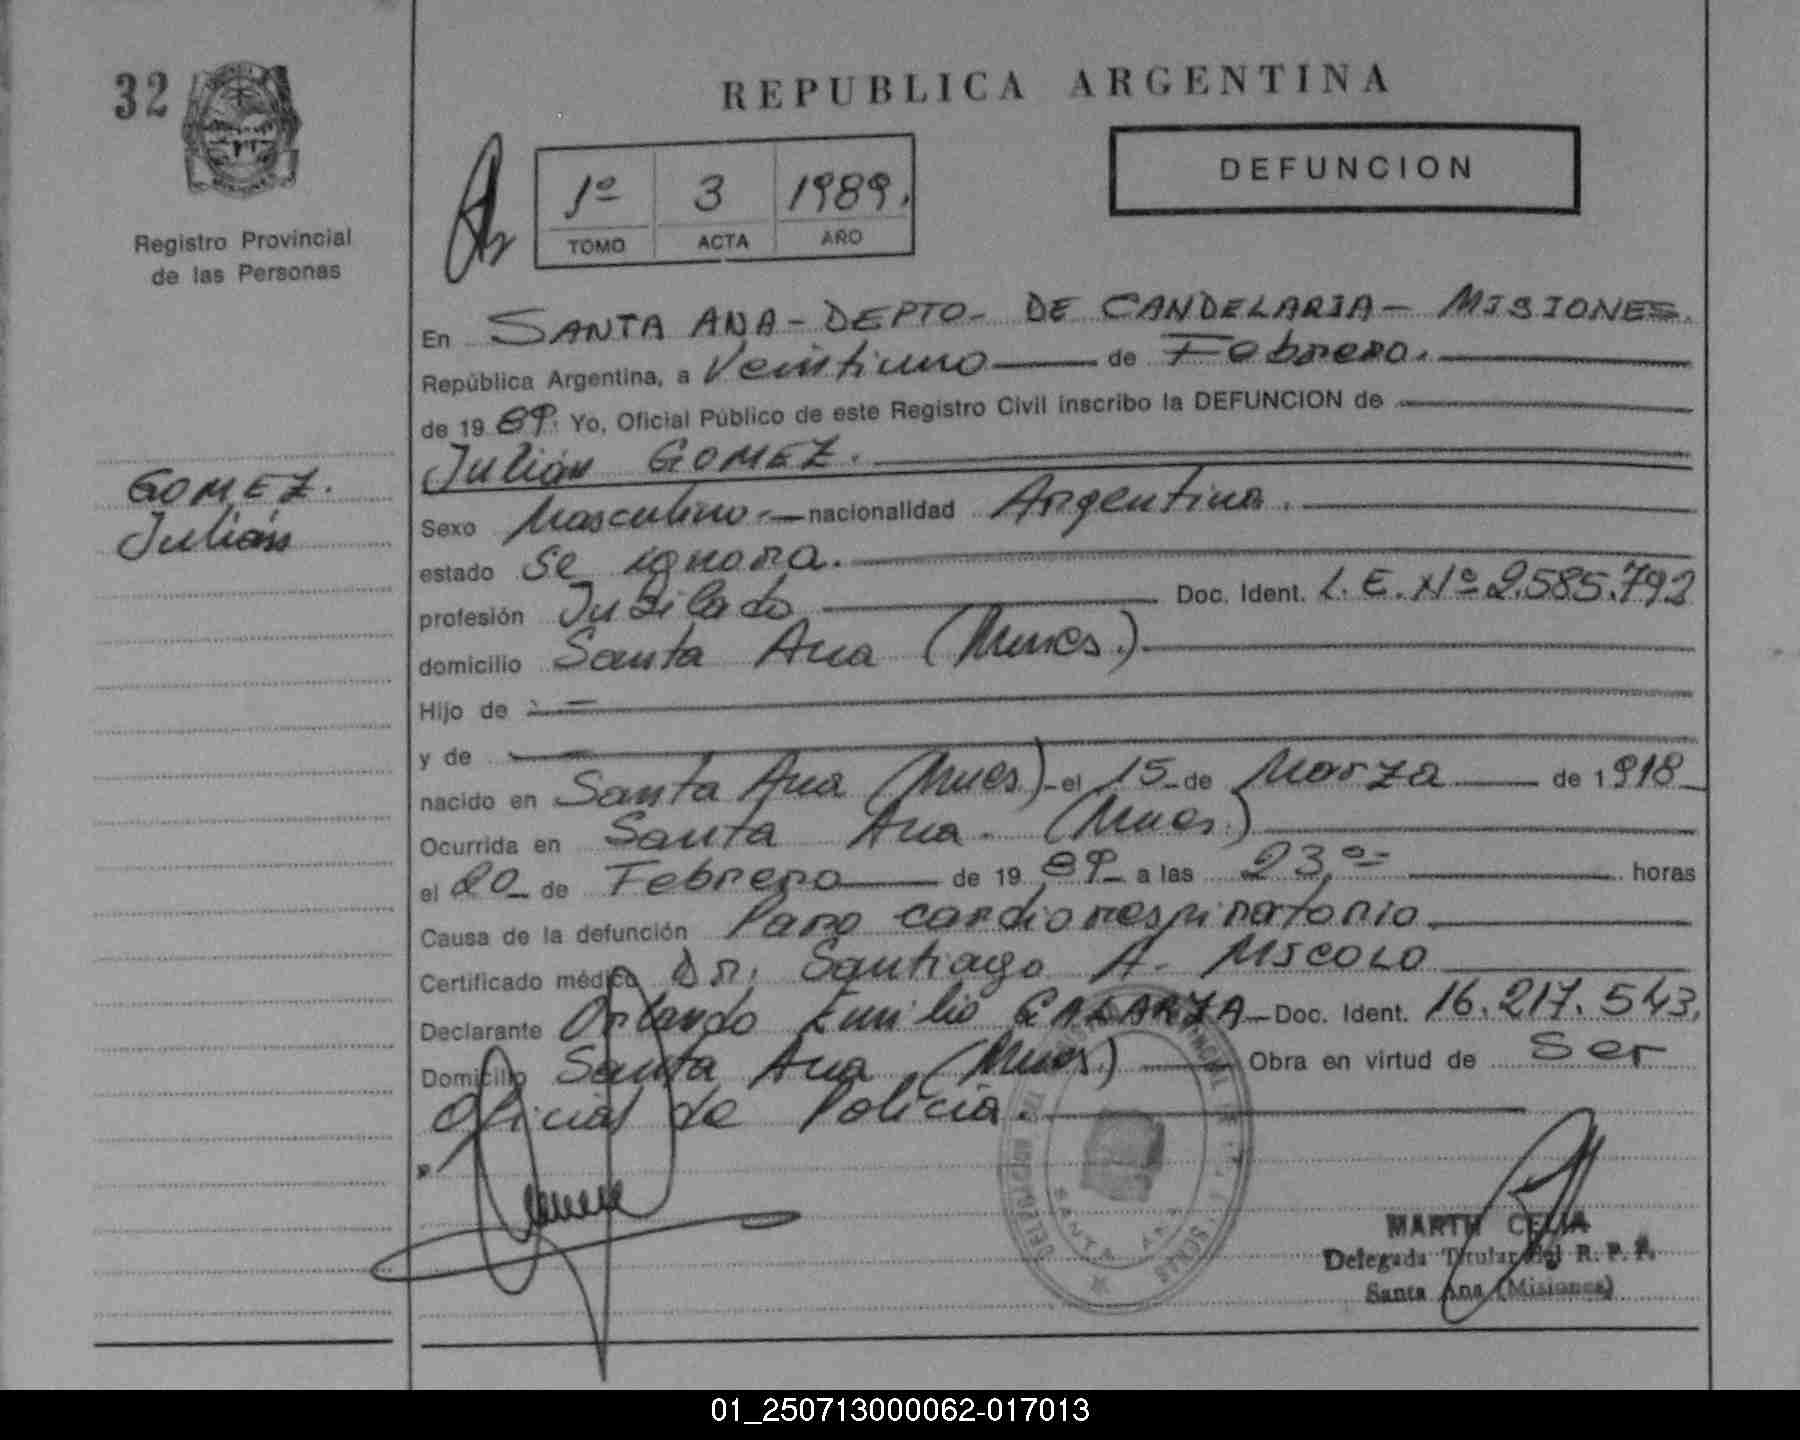 32
REPUBLICA ARGENTINA
DEFUNCION
1º 3 1989.
TOMO ACTA AÑO
Registro Provincial
de las Personas
En SANTA ANA - DEPTO - DE CANDELARIA - MISIONES.
República Argentina, a Veintiuno de Febrero.
de 19 89. Yo, Oficial Público de este Registro Civil inscribo la DEFUNCION de
Julián GOMEZ.
GOMEZ.
Julián
Sexo Masculino.- nacionalidad Argentina.
estado se ignora.
profesión Jubilado Doc. Ident. L.E. Nº 2.585.792
domicilio Santa Ana (Mnes.)
Hijo de
y de
nacido en Santa Ana (Mnes) el 15 de Marzo de 1918
Ocurrida en Santa Ana. (Mnes.)
el 20 de Febrero de 19 89 a las 23,00 horas
Causa de la defunción Paro cardiorrespiratorio
Certificado médico Dr. Santiago A. MICOLO
Declarante Orlando Emilio GALARZA - Doc. Ident. 16.217.543,
Domicilio Santa Ana (Mnes.) Obra en virtud de Ser
Oficial de Policía.
SANTA ANA
MARTH CELIA
Delegada Titular del R. P. P.
Santa Ana (Misiones)
01_250713000062-017013